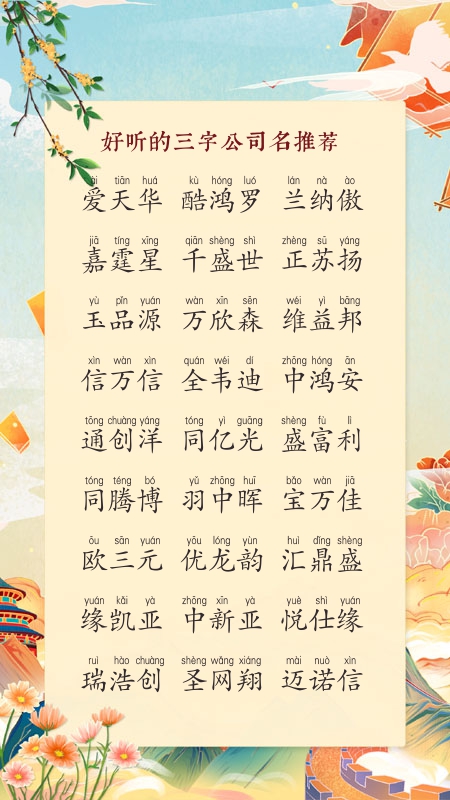 好听的三字公司名推荐
ài tiān huá kù hóng luó lán nà ào
爱天华 酷鸿罗 兰纳傲
jiā tíng xīng qiān shèng shì zhèng sū yáng
嘉霆星 千盛世 正苏扬
yù pǐn yuán wàn xīn sēn wéi yì bāng
玉品源 万欣森 维益邦
xìn wàn xìn quán wéi dí zhōng hóng ān
信万信 全韦迪 中鸿安
tōng chuàng yáng tóng yì guāng shèng fù lì
通创洋 同亿光 盛富利
tóng téng bó yǔ zhōng huī bǎo wàn jiā
同腾博 羽中晖 宝万佳
ōu sān yuán yōu lóng yùn huì dǐng shèng
欧三元 优龙韵 汇鼎盛
yuán kǎi yà zhōng xīn yà yuè shì yuán
缘凯亚 中新亚 悦仕缘
ruì hào chuàng shèng wǎng xiáng mài nuò xìn
瑞浩创 圣网翔 迈诺信